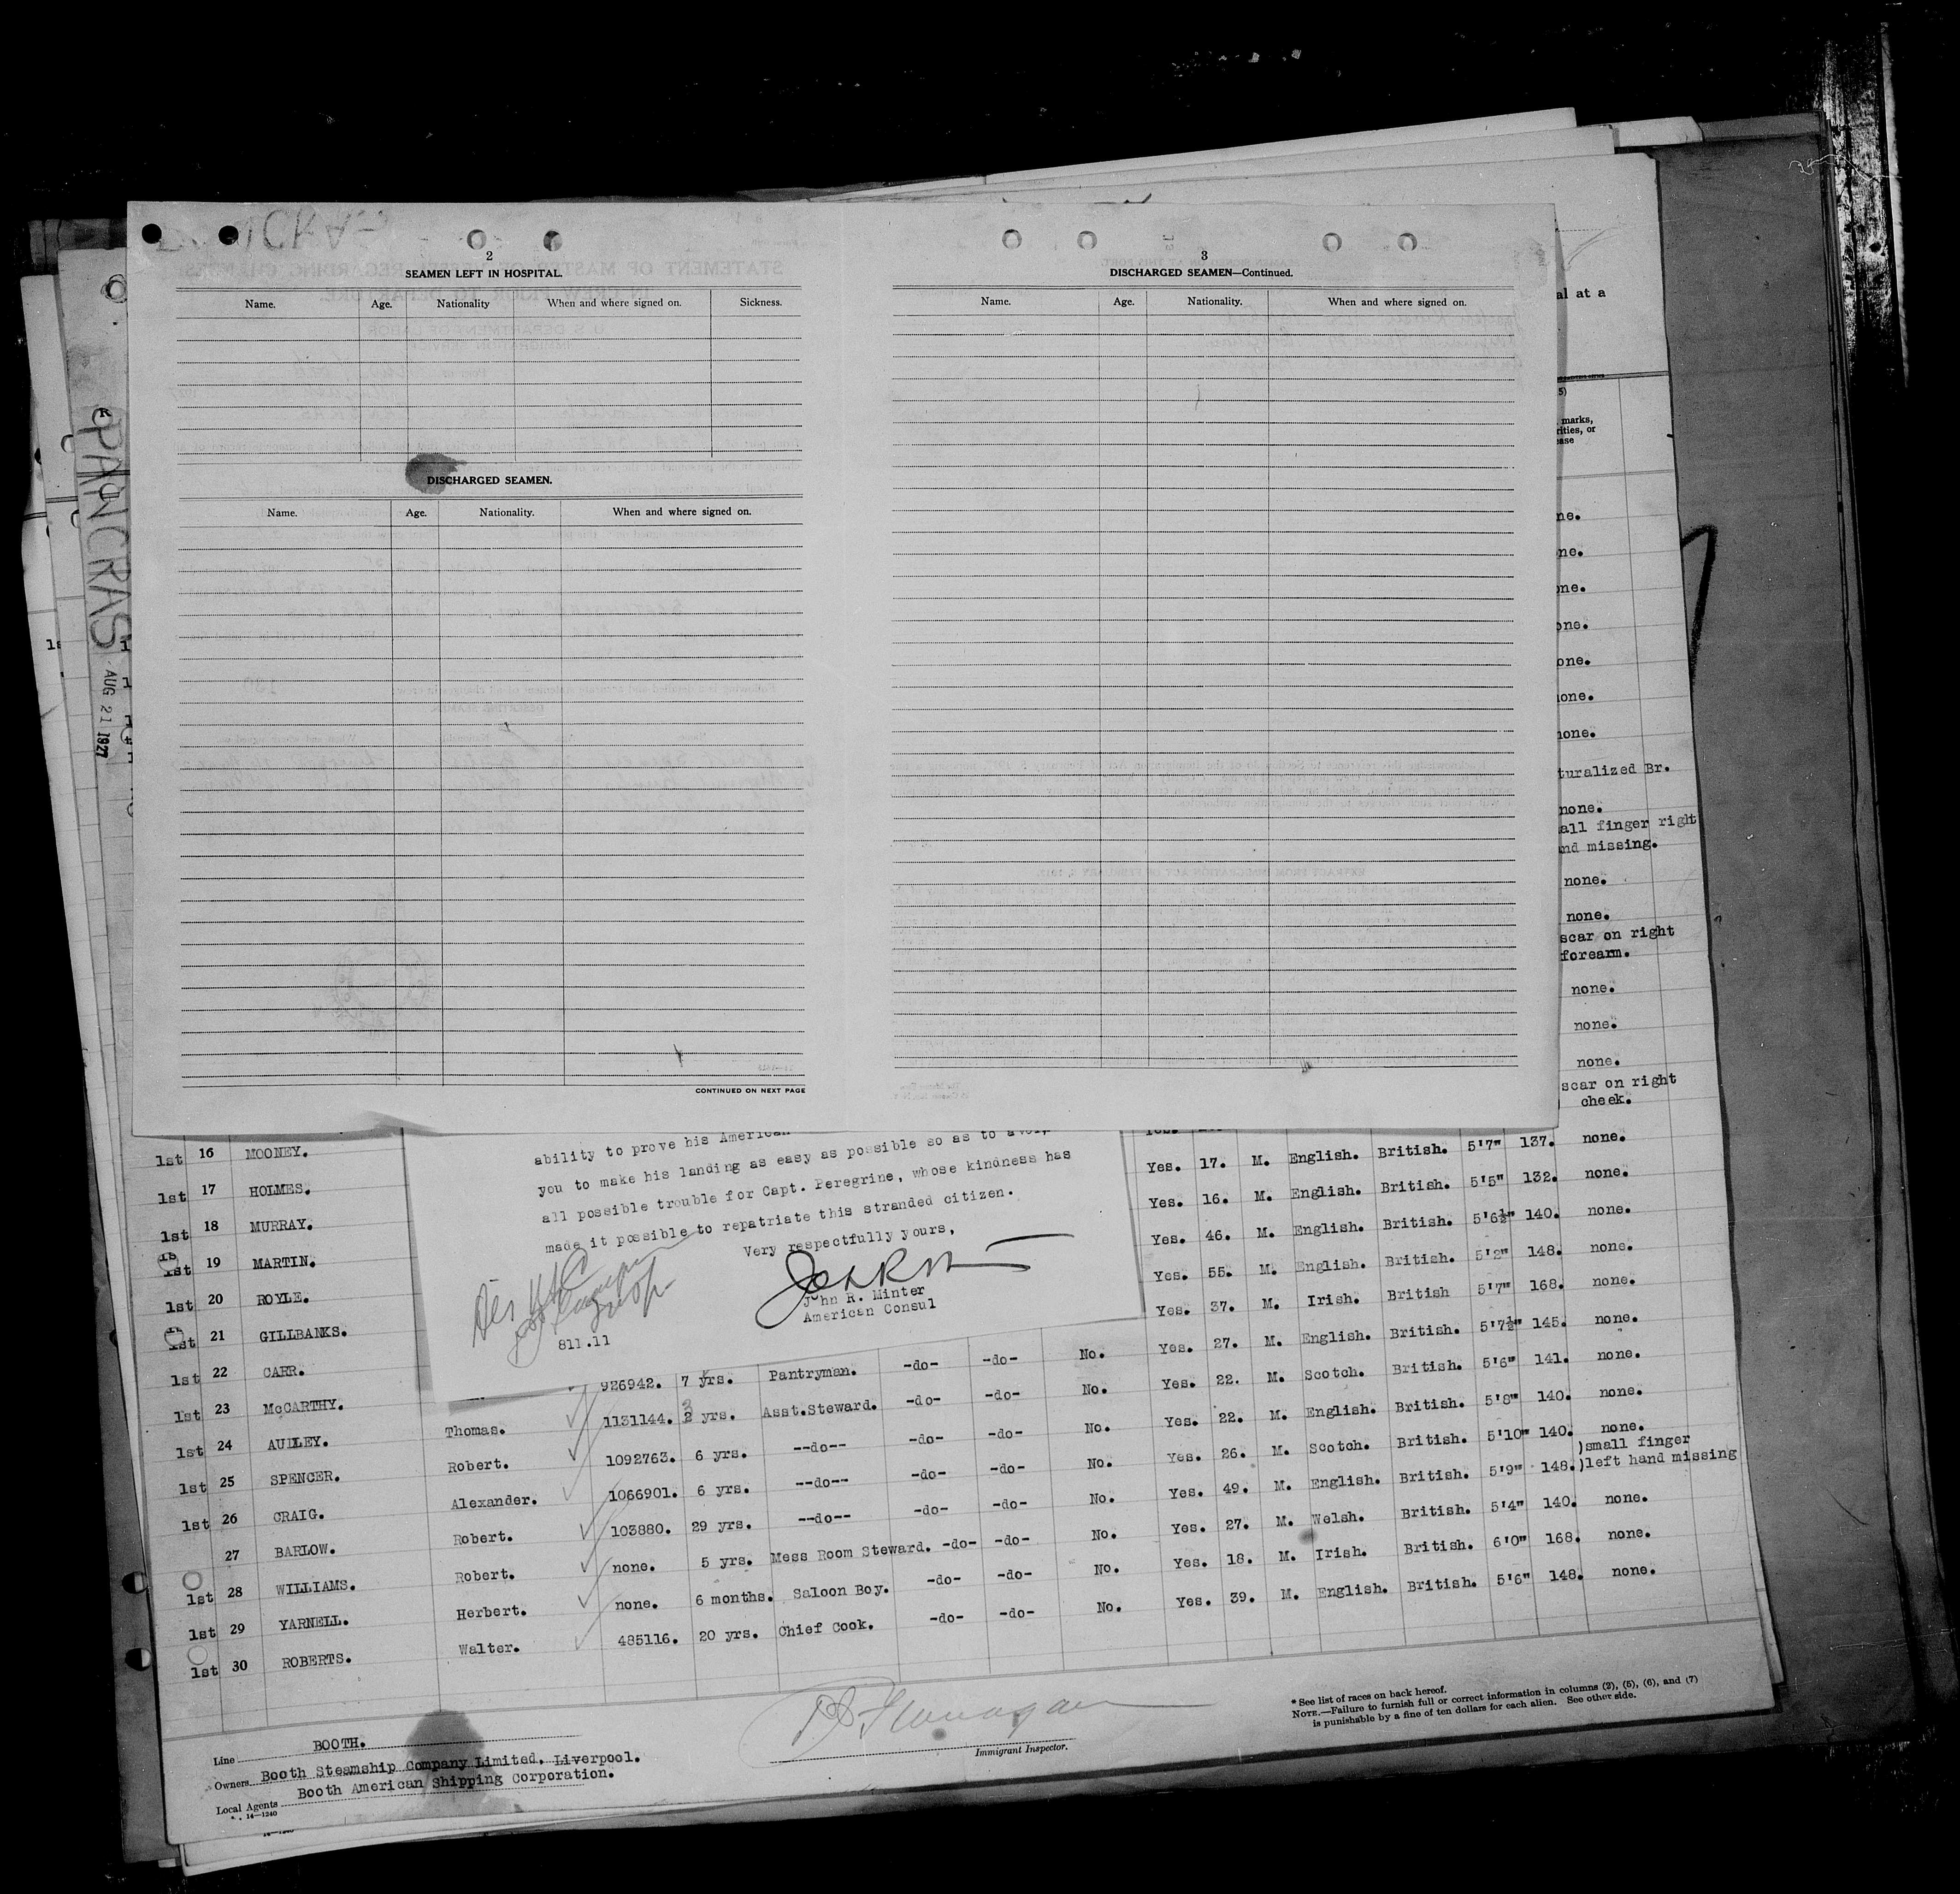 PANCRAS
AUG 21 1927
2
SEAMEN LEFT IN HOSPITAL.
Name. Age. Nationality When and where signed on. Sickness.
DISCHARGED SEAMEN.
Name. Age. Nationality. When and where signed on.
CONTINUED ON NEXT PAGE
3
DISCHARGED SEAMEN—Continued.
Name. Age. Nationality. When and where signed on.
al at a
marks,
rities, or
ease
ne.
ne.
one.
one.
one.
none.
none.
turalized Br.
none.
all finger right
nd missing.
none.
none.
scar on right
forearm.
none.
none.
none.
scar on right
cheek.
ability to prove his American
you to make his landing as easy as possible so as to avoid
all possible trouble for Capt. Peregrine, whose kindness has
made it possible to repatriate this stranded citizen.
Very respectfully yours,
John R. Minter
American Consul
811.11
1st 16 MOONEY.
1st 17 HOLMES.
1st 18 MURRAY. Yes. 17. M. English. British. 5'7" 137. none.
1st 19 MARTIN. Yes. 16. M. English. British. 5'5" 132. none.
1st 20 ROYLE. Yes. 46. M. English. British. 5'6½" 140. none.
1st 21 GILLBANKS. Yes. 55. M. English. British. 5'2" 148. none.
1st 22 CARR. Yes. 37. M. Irish. British 5'7" 168. none.
1st 23 McCARTHY. 926942. 7 yrs. Pantryman. -do- -do- No. Yes. 27. M. English. British. 5'7½" 145. none.
1st 24 AUDLEY. Thomas. 1131144. 2 yrs. Asst.Steward. -do- -do- No. Yes. 22. M. Scotch. British. 5'6" 141. none.
1st 25 SPENCER. Robert. 1092763. 6 yrs. --do-- -do- -do- No. Yes. 22. M. English. British. 5'8" 140. none.
1st 26 CRAIG. Alexander. 1066901. 6 yrs. --do-- -do- -do- No. Yes. 26. M. Scotch. British. 5'10" 140. none.
27 BARLOW. Robert. 103880. 29 yrs. --do-- -do- -do- No. Yes. 49. M. English. British. 5'9" 148. )small finger
)left hand missing
1st 28 WILLIAMS. Robert. none. 5 yrs. Mess Room Steward. -do- -do- No. Yes. 27. M. Welsh. British. 5'4" 140. none.
1st 29 YARNELL. Herbert. none. 6 months. Saloon Boy. -do- -do- No. Yes. 18. M. Irish. British. 6'0" 168. none.
1st 30 ROBERTS. Walter. 485116. 20 yrs. Chief Cook. -do- -do- No. Yes. 39. M. English. British. 5'6" 148. none.
Line BOOTH.
Owners Booth Steamship Company Limited. Liverpool.
Local Agents Booth American Shipping Corporation.
14—1240
Immigrant Inspector.
* See list of races on back hereof.
NOTE.—Failure to furnish full or correct information in columns (2), (5), (6), and (7)
is punishable by a fine of ten dollars for each alien. See other side.